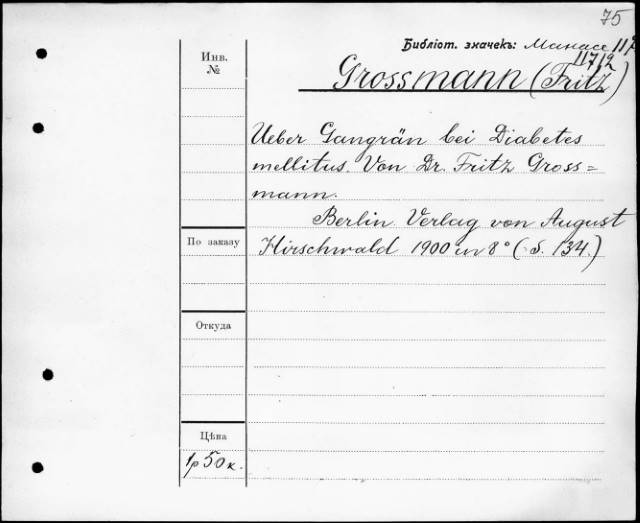 75
Библіот. значекъ: Манасе 112
11712
Grossmann (Fritz)
Инв.
№
Ueber Gangrän bei Diabetes
mellitus. Von Dr. Fritz Gross=
mann.
Berlin Verlag von August
По заказу
Hirschwald 1900 in 8° (S. 134.)
Откуда
Цѣна
1р 50к.